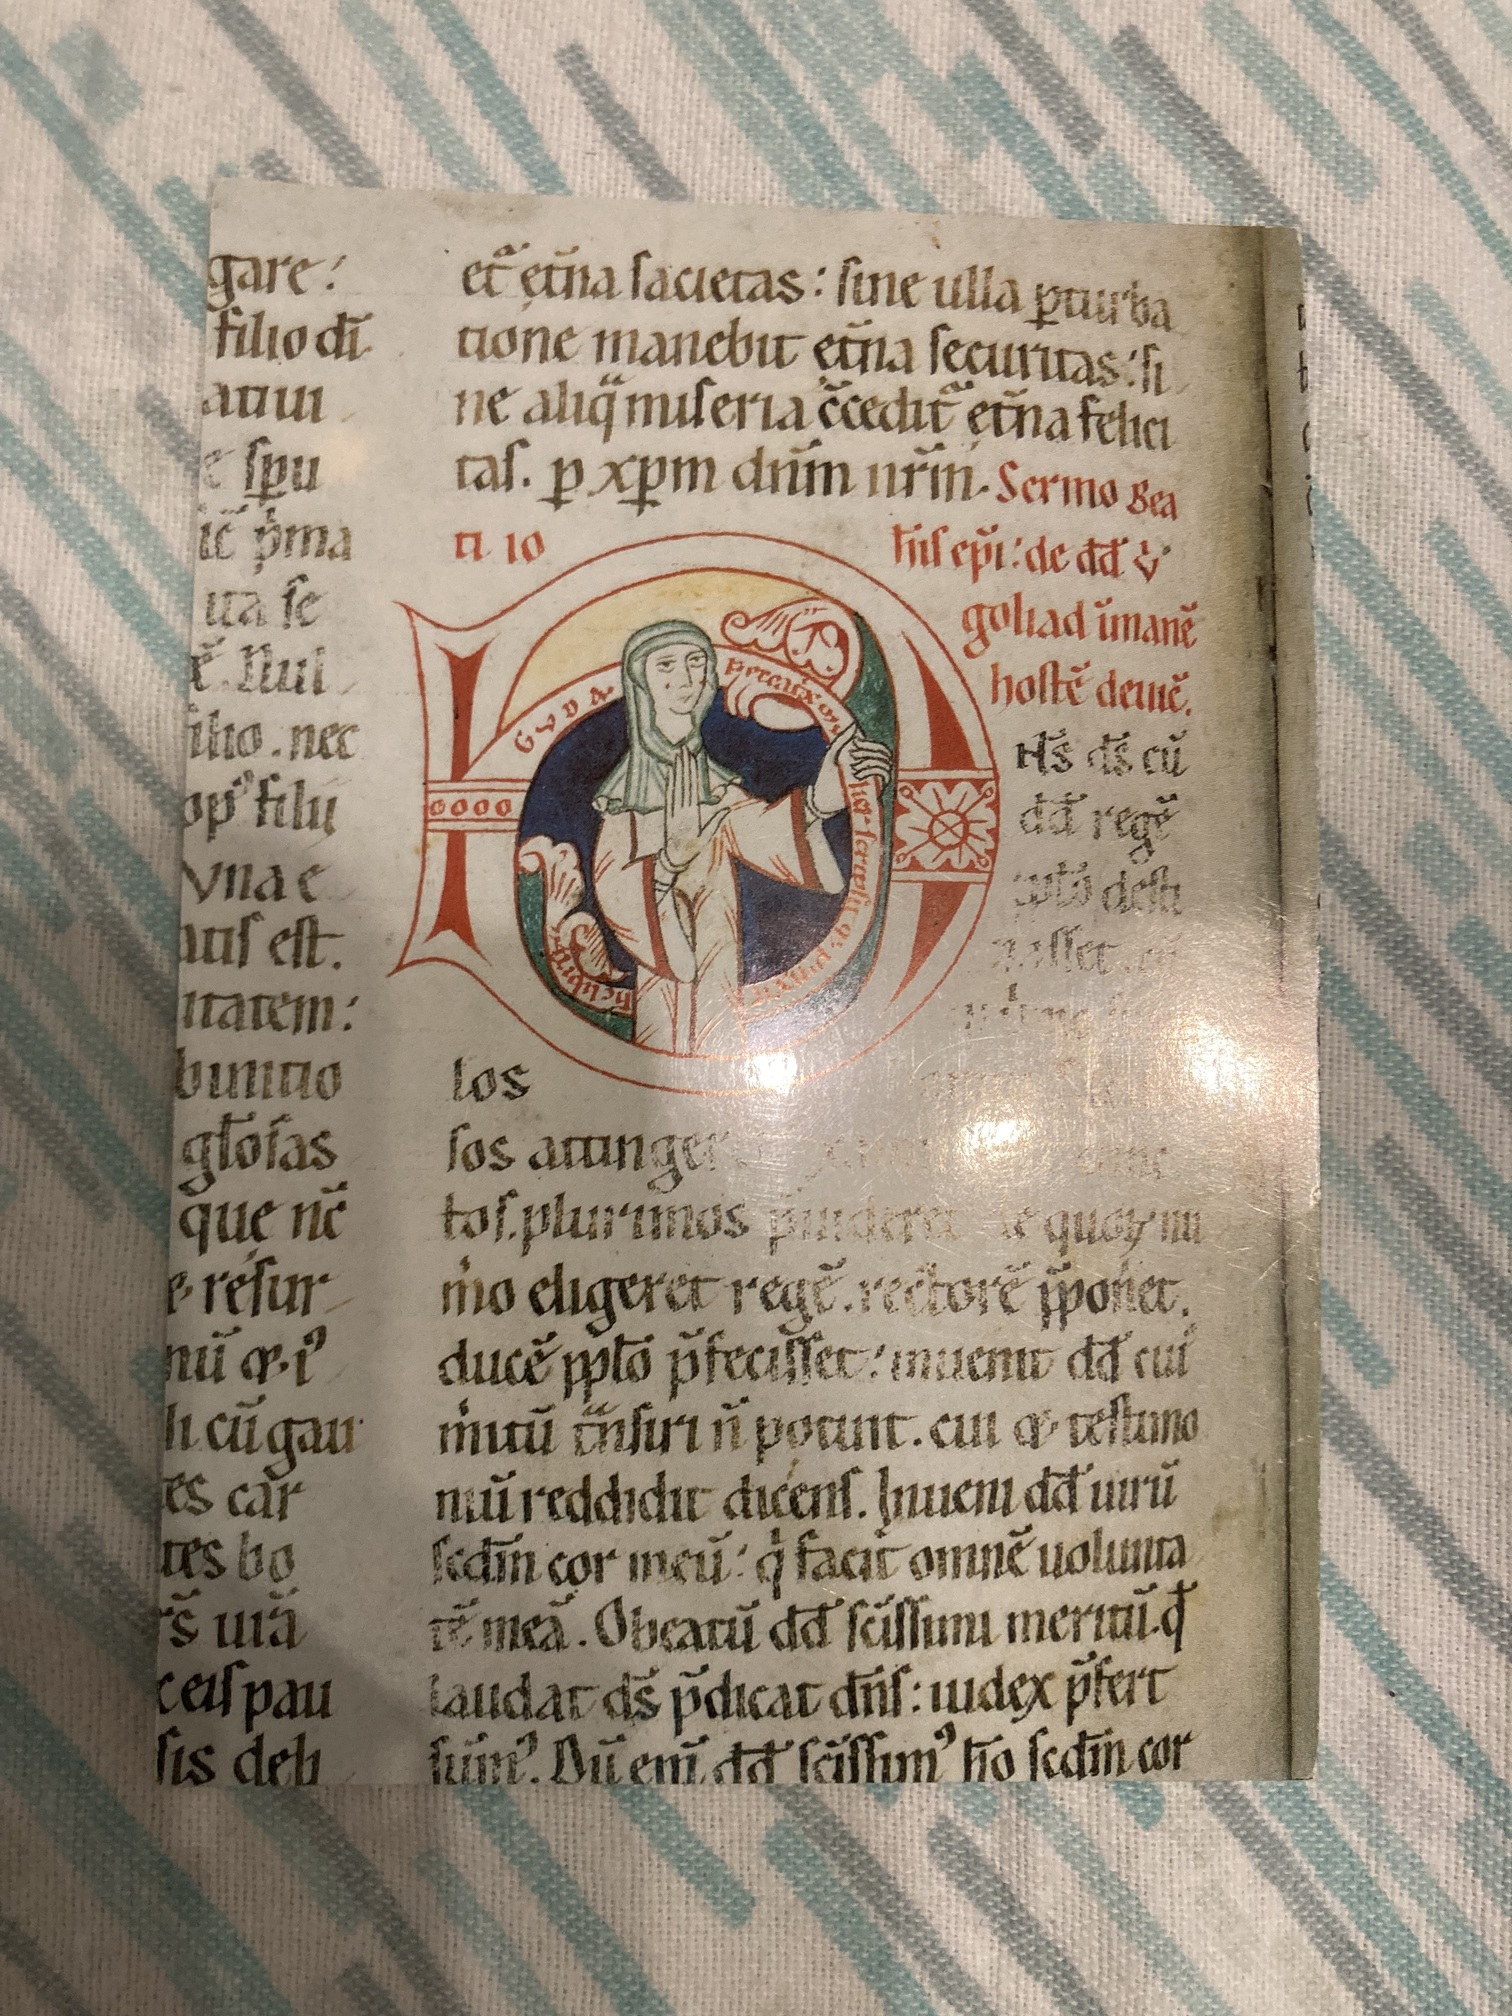 gare:
filio dī
atiui
e spu
ic pma
ita se
ē. Nul
ilio. nec
op' filii
vna e
atis est.
itatem:
bunitio
głosas
que nc̄
e. resur
nū
li cū gau
es car
tes bo
rs̄ uiā
c eis pau
sis deb
et̄ ęt̄na sacietas: sine ulla ꝑturba
tione manebit ęt̄na securitas: si
ne aliq̄ miseria c̄cedit̄ ęt̄na felici
tas. p xp̄m dn̄m nr̄m. Sermo Bea
ti io
h̄is epi: de dd̄ v
goliad īmanē
hostē deuic̄.
GVDA
peccatrix mulier scripsit q;
pinxit
h' librū
H̄s ds̄ cū
dd̄ regē
ppl̄o desti
nasset
los
sos attinger
tos. plurimos p̄uideret de quoꝝ nu
mo eligeret regē. rectorē p̄poneret.
ducē ppl̄o p̄fecisset: inuenit dd̄ cui
mitū t̄nsiri n̄ potuit. cui testimo
niū reddidit dicens. Inueni dd̄ uirū
scdm̄ cor meū: q facit omnē uolunta
tē meā. O beatū dd̄ scissimi meritū. q̄
laudat ds̄ p̄dicat dn̄s: iudex p̄fert
sum'. Dū eni dd̄ scissim' ho scdm̄ cor